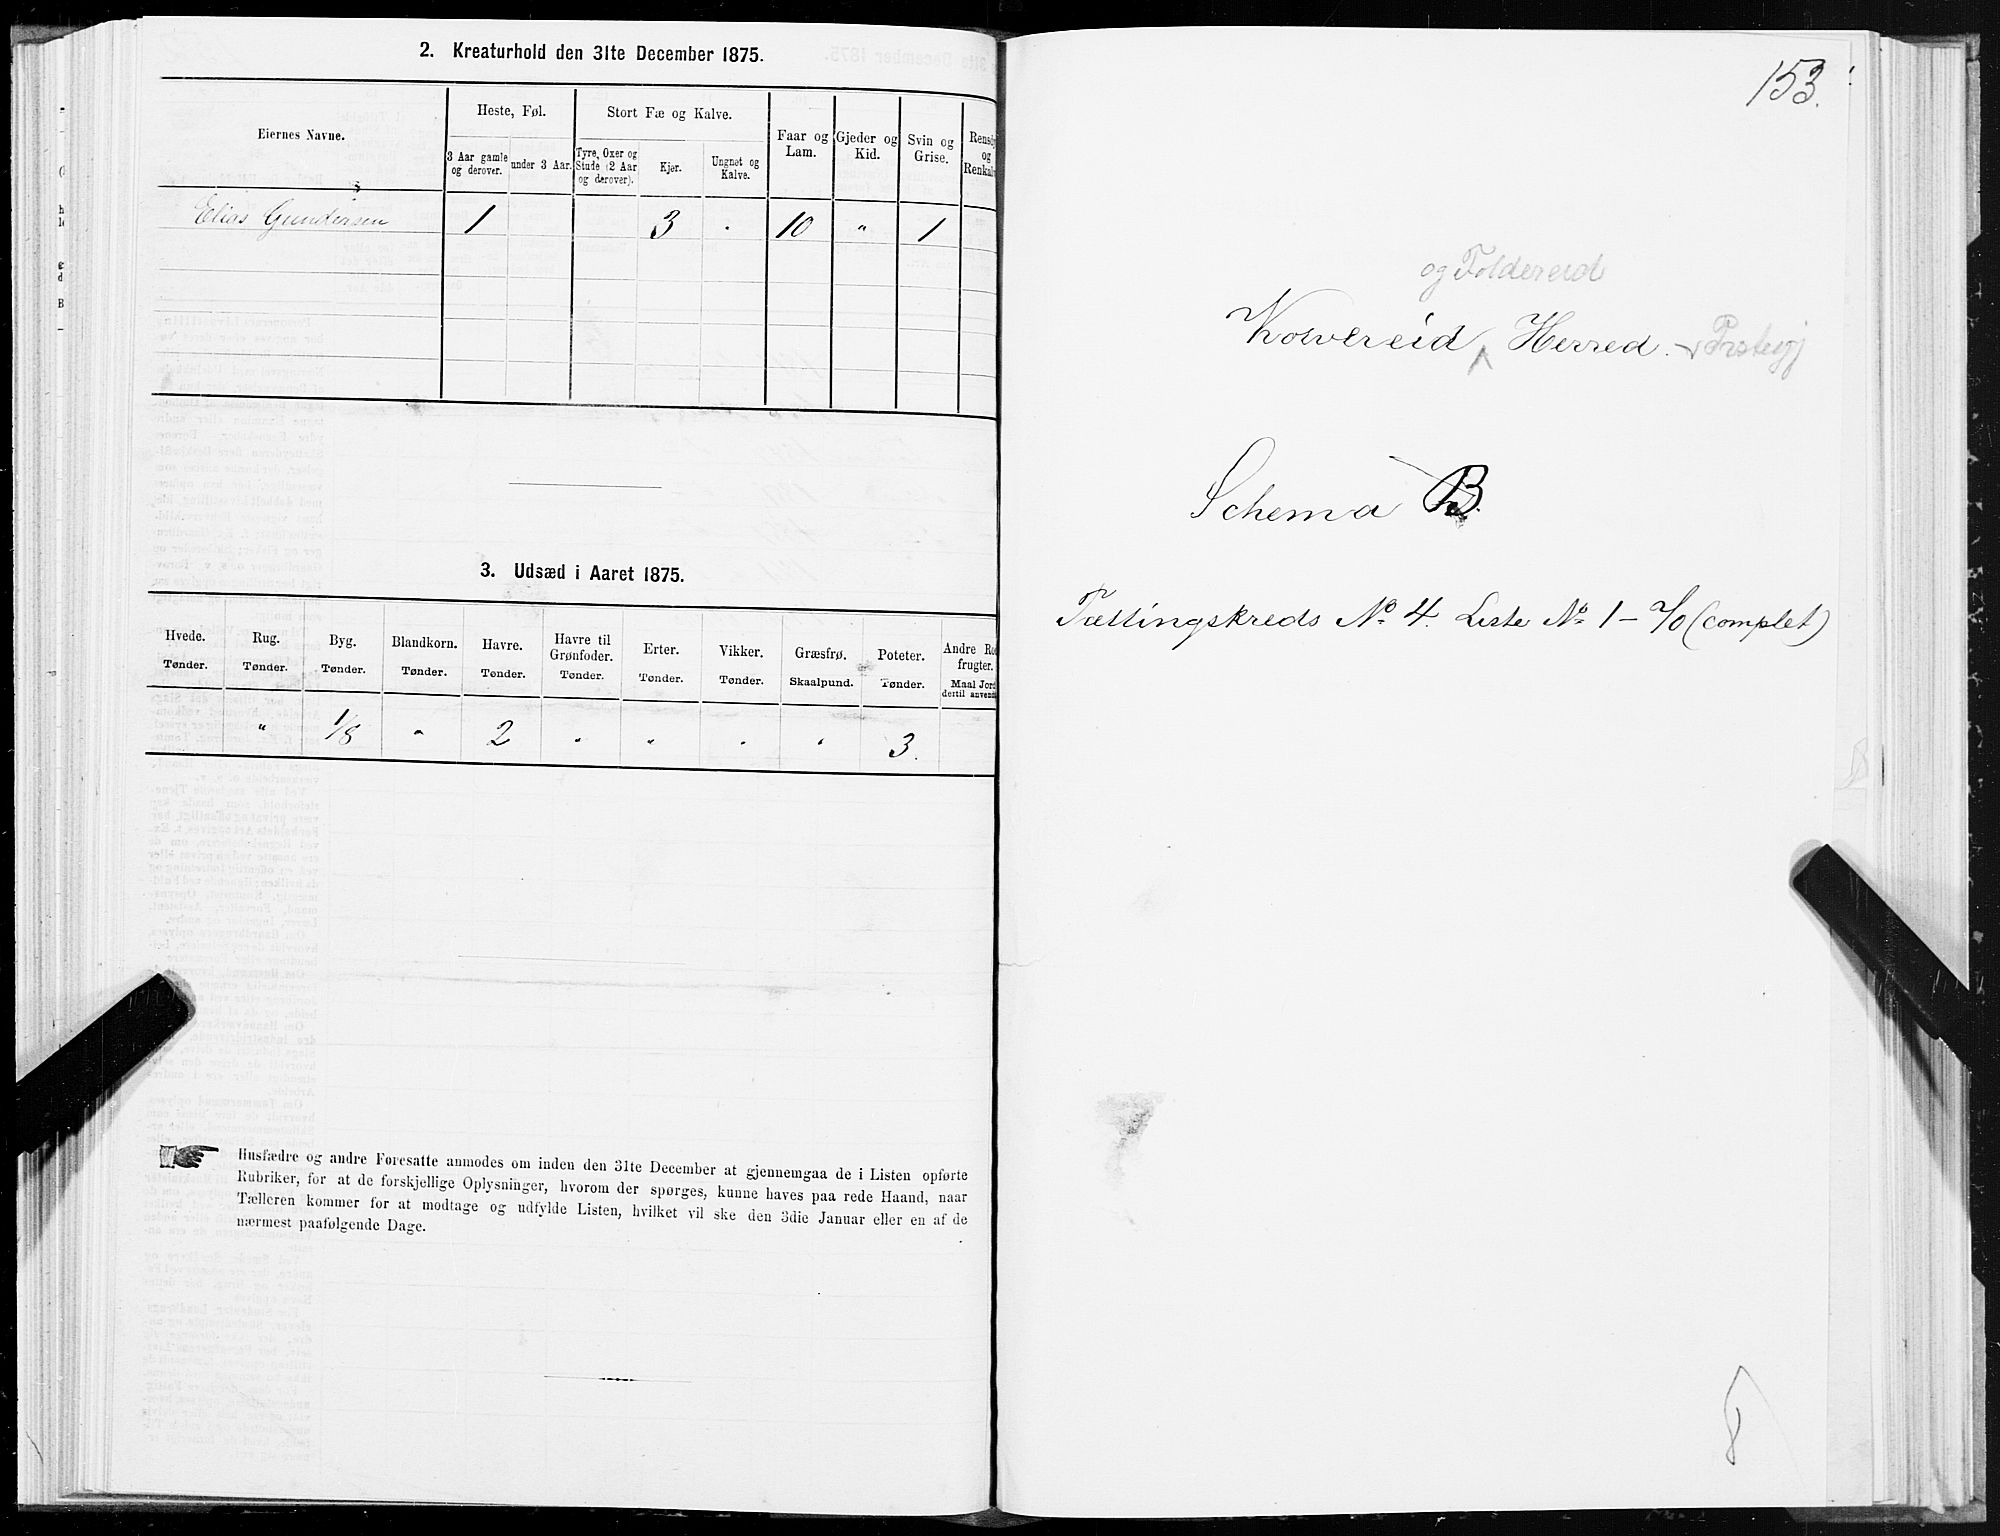 2. Kreaturhold den 31te December 1875.
Eiernes Navne.
Heste, Føl.
Stort Fæ og Kalve.
Faar og Lam.
Gjeder og Kid.
Svin og Grise.
og
3 Aar gamle og derover.
under 3 Aar.
Tyre, Oxer og Stude (2 Aar og derover).
Kjør.
Ungnøt og Kalve.
Elias Gundersen 1 3 " 10 " 1
3. Udsæd i Aaret 1875.
Hvede. Rug. Byg. Blandkorn. Havre. Havre til Grønfoder. Erter. Vikker. Græsfrø. Poteter. Andre
frugter.
Tønder. Tønder. Tønder. Tønder. Tønder. Tønder. Tønder. Tønder. Skaalpund. Tønder. Maal Jord
dertil
" 1/8 " 2 " " " " 3.
Husfædre og andre Foresatte anmodes om inden den 31te December at gjennemgaa de i Listen opførte
Rubriker, for at de forskjellige Oplysninger, hvorom der spørges, kunne haves paa rede Haand, naar
Tælleren kommer for at modtage og udfylde Listen, hvilket vil ske den 3die Januar eller en af de
nærmest paafølgende Dage.
153.
og Foldereid
Kolvereid Herred.
Schema B.
Tællingskreds No 4. Liste No 1 - 70 (complet)